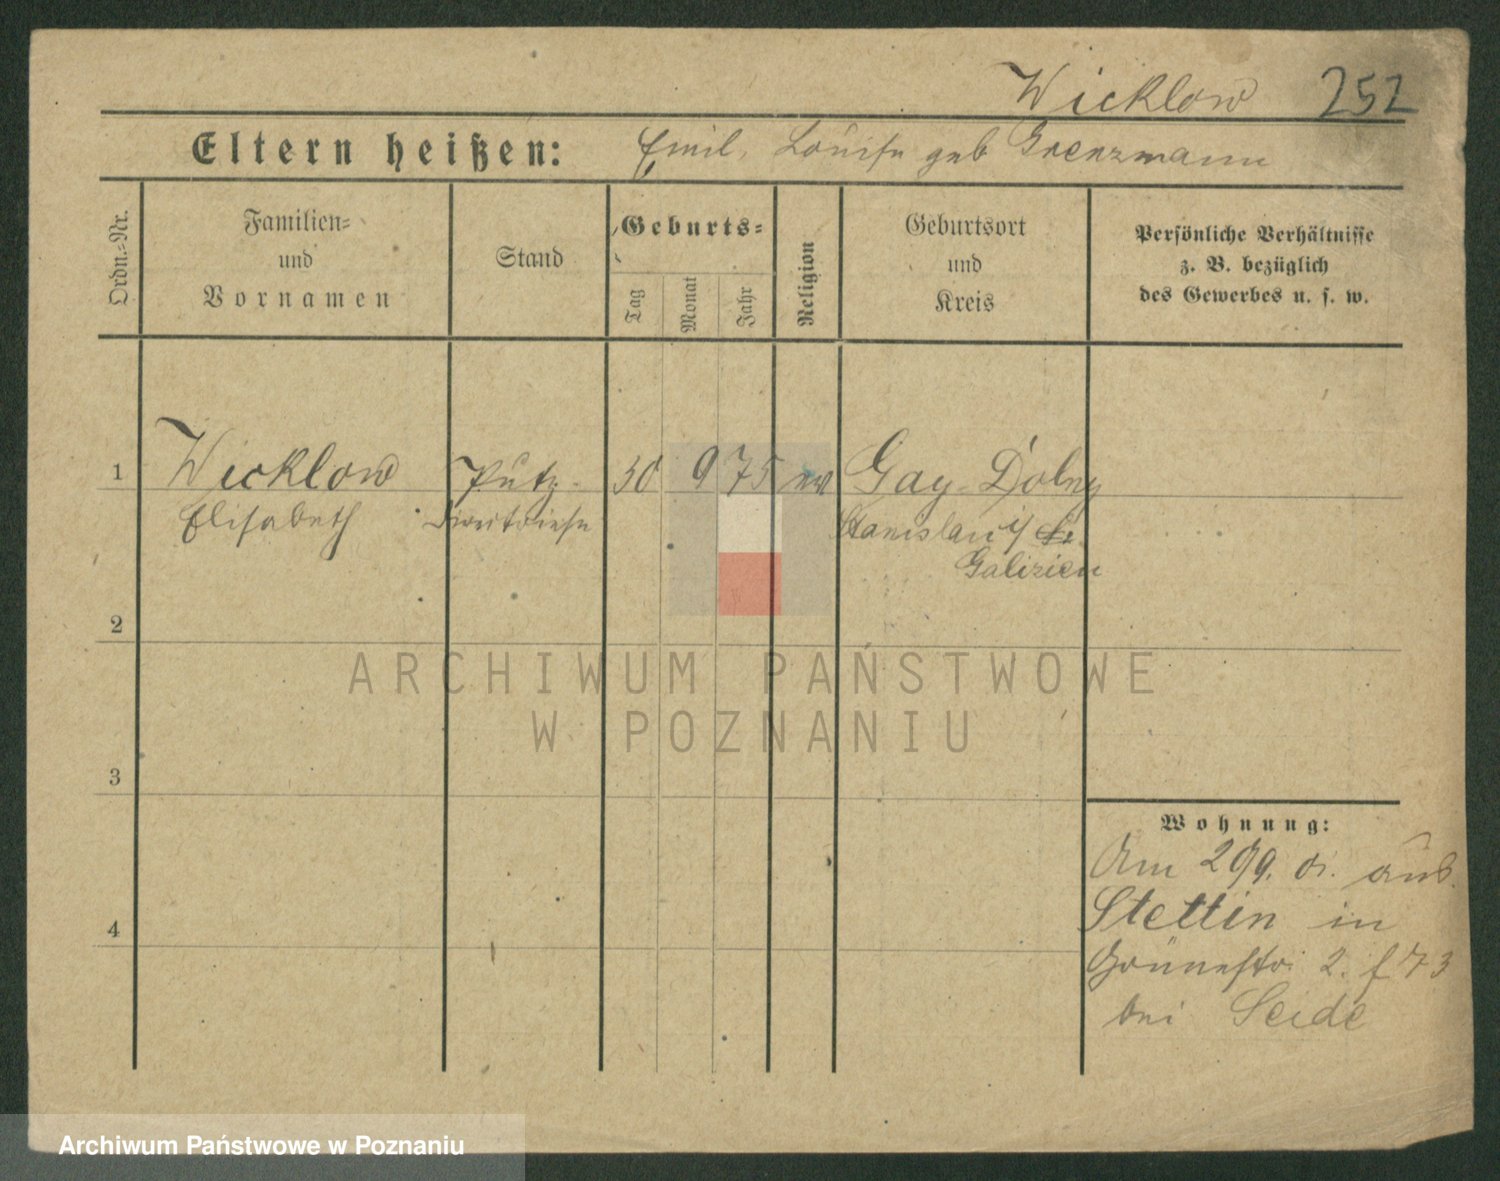 Wicklow 252
Eltern heißen: Emil, Louise geb Grenzmann
Ordn.=Nr.
Familien=
und
Vornamen
Stand
Geburts=
Tag
Monat
Jahr
Religion
Geburtsort
und
Kreis
Persönliche Verhältnisse
z. B. bezüglich
des Gewerbes u. s. w.
1 Wicklow Putz- 30 9 75 ev Gay Dolny
Elisabeth Direktriese Stanislau i/
Galizien
2
3
4
ARCHIWUM PAŃSTWOWE
W POZNANIU
Wohnung:
Am 29/9. aus
Stettin in
Grünestr. 2.
bei Seide
Archiwum Państwowe w Poznaniu